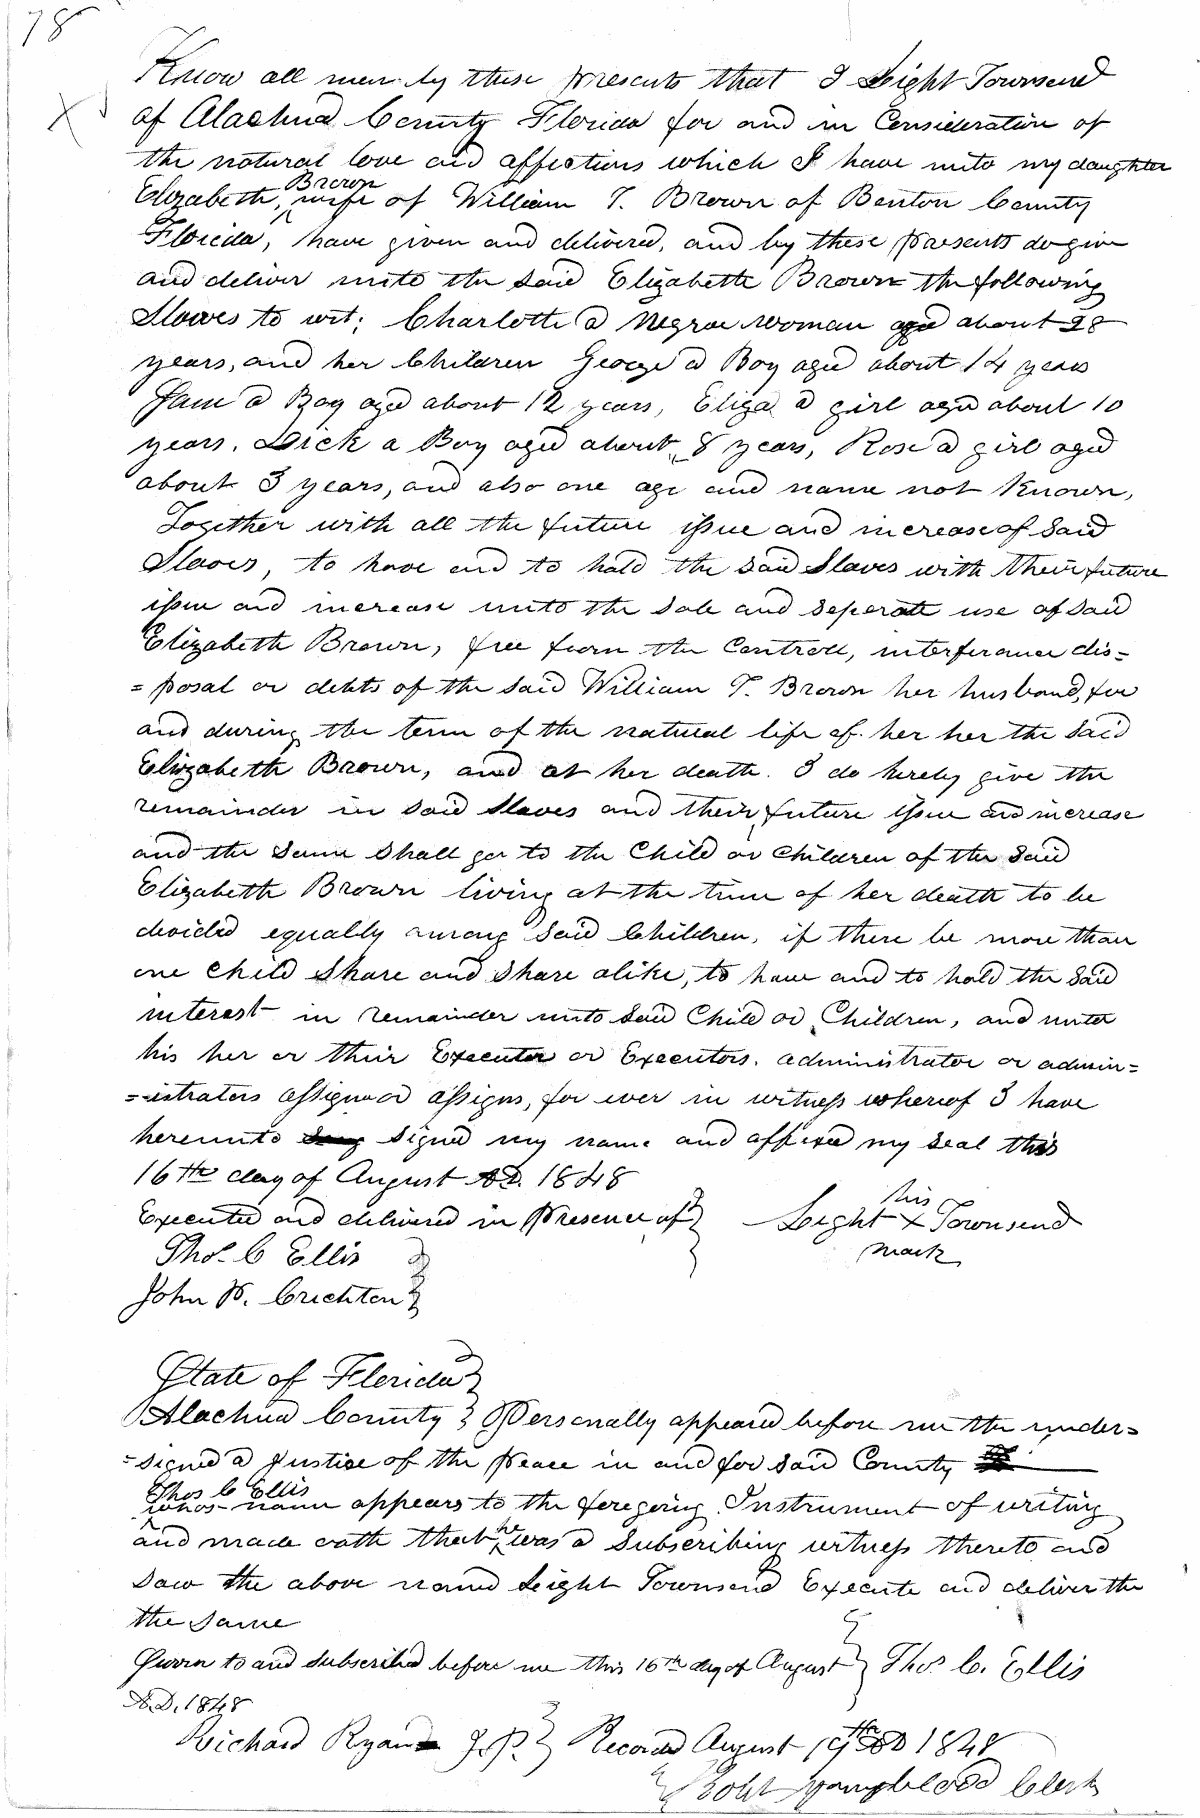 78
Know all men by these presents that I Leight Townsend
of Alachua County Florida for and in Consideration of
the natural love and affections which I have unto my daughter
Brown
Elizabeth, wife of William T. Brown of Benton County
Florida, have given and delivered, and by these presents do give
and deliver unto the said Elizabeth Brown the following
Slaves to wit; Charlotte a Negroe woman aged about 28
years, and her Children George a Boy aged about 14 years
Sam a Boy aged about 12 years, Eliza a girl aged about 10
years. Dick a Boy aged about 8 years, Rose a girl aged
about 3 years, and also one age and name not Known,
Together with all the future issue and increase of Said
Slaves, to have and to hold the said Slaves with their future
issue and increase unto the sole and seperate use of said
Elizabeth Brown, free from the Controll, interferance dis=
=posal or debts of the said William T. Brown her husband, for
and during the term of the natural life of her her the Said
Elizabeth Brown, and at her death. I do hereby give the
remainder in said Slaves and their future issue and increase
and the same shall go to the Child or Children of the Said
Elizabeth Brown living at the time of her death to be
divided equally among said Children, if there be more than
one child Share and Share alike, to have and to hold the Said
interest in remainder unto Said Child or Children, and unto
his her or their Executor or Executors. administrator or admin=
=istrators assign or assigns, for ever in witness whereof I have
hereunto signed my name and affixed my seal this
16th day of August AD. 1848
Executed and delivered in presence of
his
Leight X Townsend
mark
Thos. C Ellis
John W. Crichton
State of Florida
Alachua County } Personally appeared before me the under=
=signed a Justice of the peace in and for said County
Thos C Ellis
whos name appears to the foregoing Instrument of writing
and made oath that he was a Subscribing witness thereto and
saw the above named Leight Townsend Execute and deliver the
the same
Sworn to and subscribed before me this 16th day of August } Thos C. Ellis
A.D. 1848
Richard Ryan J.P. } Recorded August 19th AD 1848
Robt Youngblood Clerk